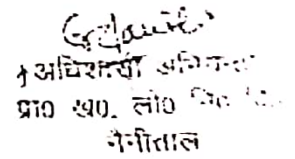 अधिशासी अभियन्ता
प्रा० ख०, लो० नि०
नैनीताल